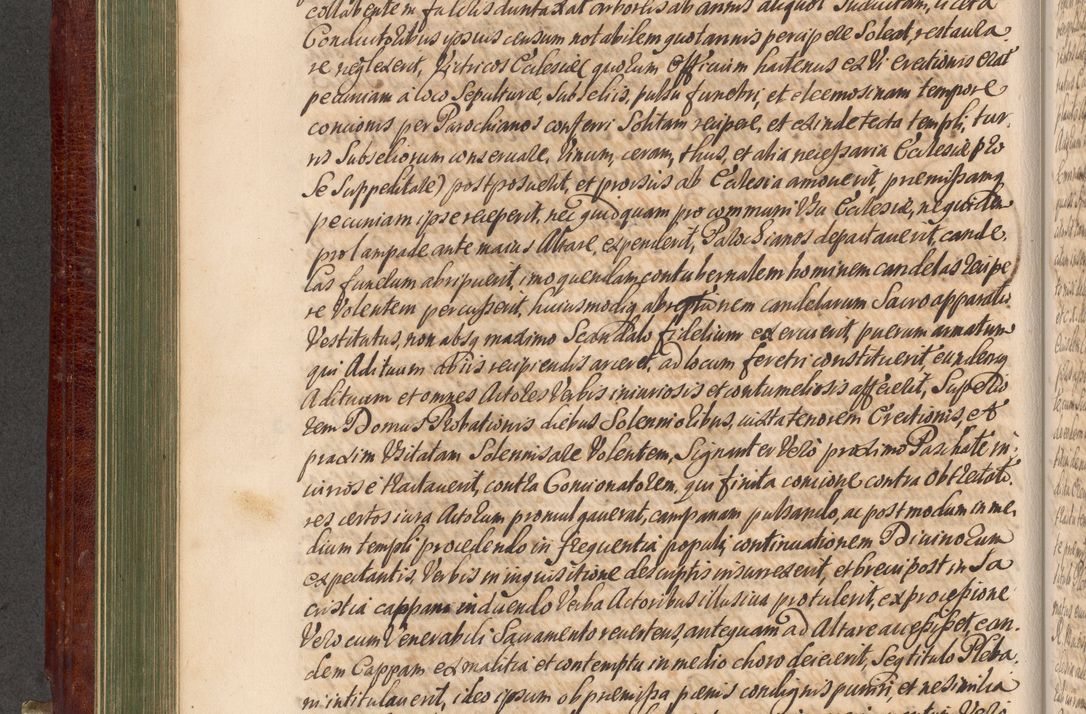 collabentem fulcris duntaxat arboris ab annis aliquot suducitam, cicera
Conductoribus ipsius censum notabilem quotannis percipere Soleat, restaura
re neglexerit, Vitricos Ecclesiæ (quorum Officium hactenus ex Vi erectionis erat
pecuniam à loco Sepulturæ, Subseliis, pulsu funebri, et elcemosinam tempore
concionis per Parochianos conferri Solitam recipere, et exinde tecta templi, tur-
ris Subseliorum conservare, Vinum, ceram, thus, et alia necessaria Ecclesiæ pro
Se Suppeditare) postposuerit, et prorsus ab Ecclesia amoverit, præmissamq
pecuniam ipse receperit, nec quidquam pro communi Usu Ecclesiæ, ne quidem
pro lampade ante maius Altare, expenderit, Parochianos depactaverit, cande-
las funeralium abripuerit, imo quendam contubernalem hominem candelas recipe
re Volentem percusserit, huiusmodiq abreptionem candelarum Sacro apparatu
Vestitutus, non absq maximo Scandalo fidelium exercuerit, puerum armatum
qui Aedituum ab iis recipiendis arceret, ad locum feretri constituerit, eundemq
Aedituum et omnes Actores Verbis iniuriosis et contumeliosis affecerit, Superio
rem Domus Probationis diebus Solennioribus, iuxta tenorem Erectionis, et
praxim Usitatam Solennisare Volentem, Signanter Verò proximo Paschate in-
iuriose tractaverit, contra Concionatorem, qui finita concione contra Obtrectato-
res certos iura Actorum promulgaverat, campanam pulsando, ac postmodum in me-
dium templi procedendo in frequentia populi, continuationem Divinorum
expectantis, Verbis in inquisitione descriptis insurrexerit, et brevi post in Sa
cristia cappam induendo Verba Actoribus illusiva protulerit, ex processione
Vero cum Venerabili Sacramento revertens, antequam ad Altare accessisset, ean-
dem Cappam ex malitia et contemptu in medio choro deiecerit, Seq titulo Pleba-
ni intitulaverit, ideo ipsum ob præmissa poenis condignis puniri, et ne similia